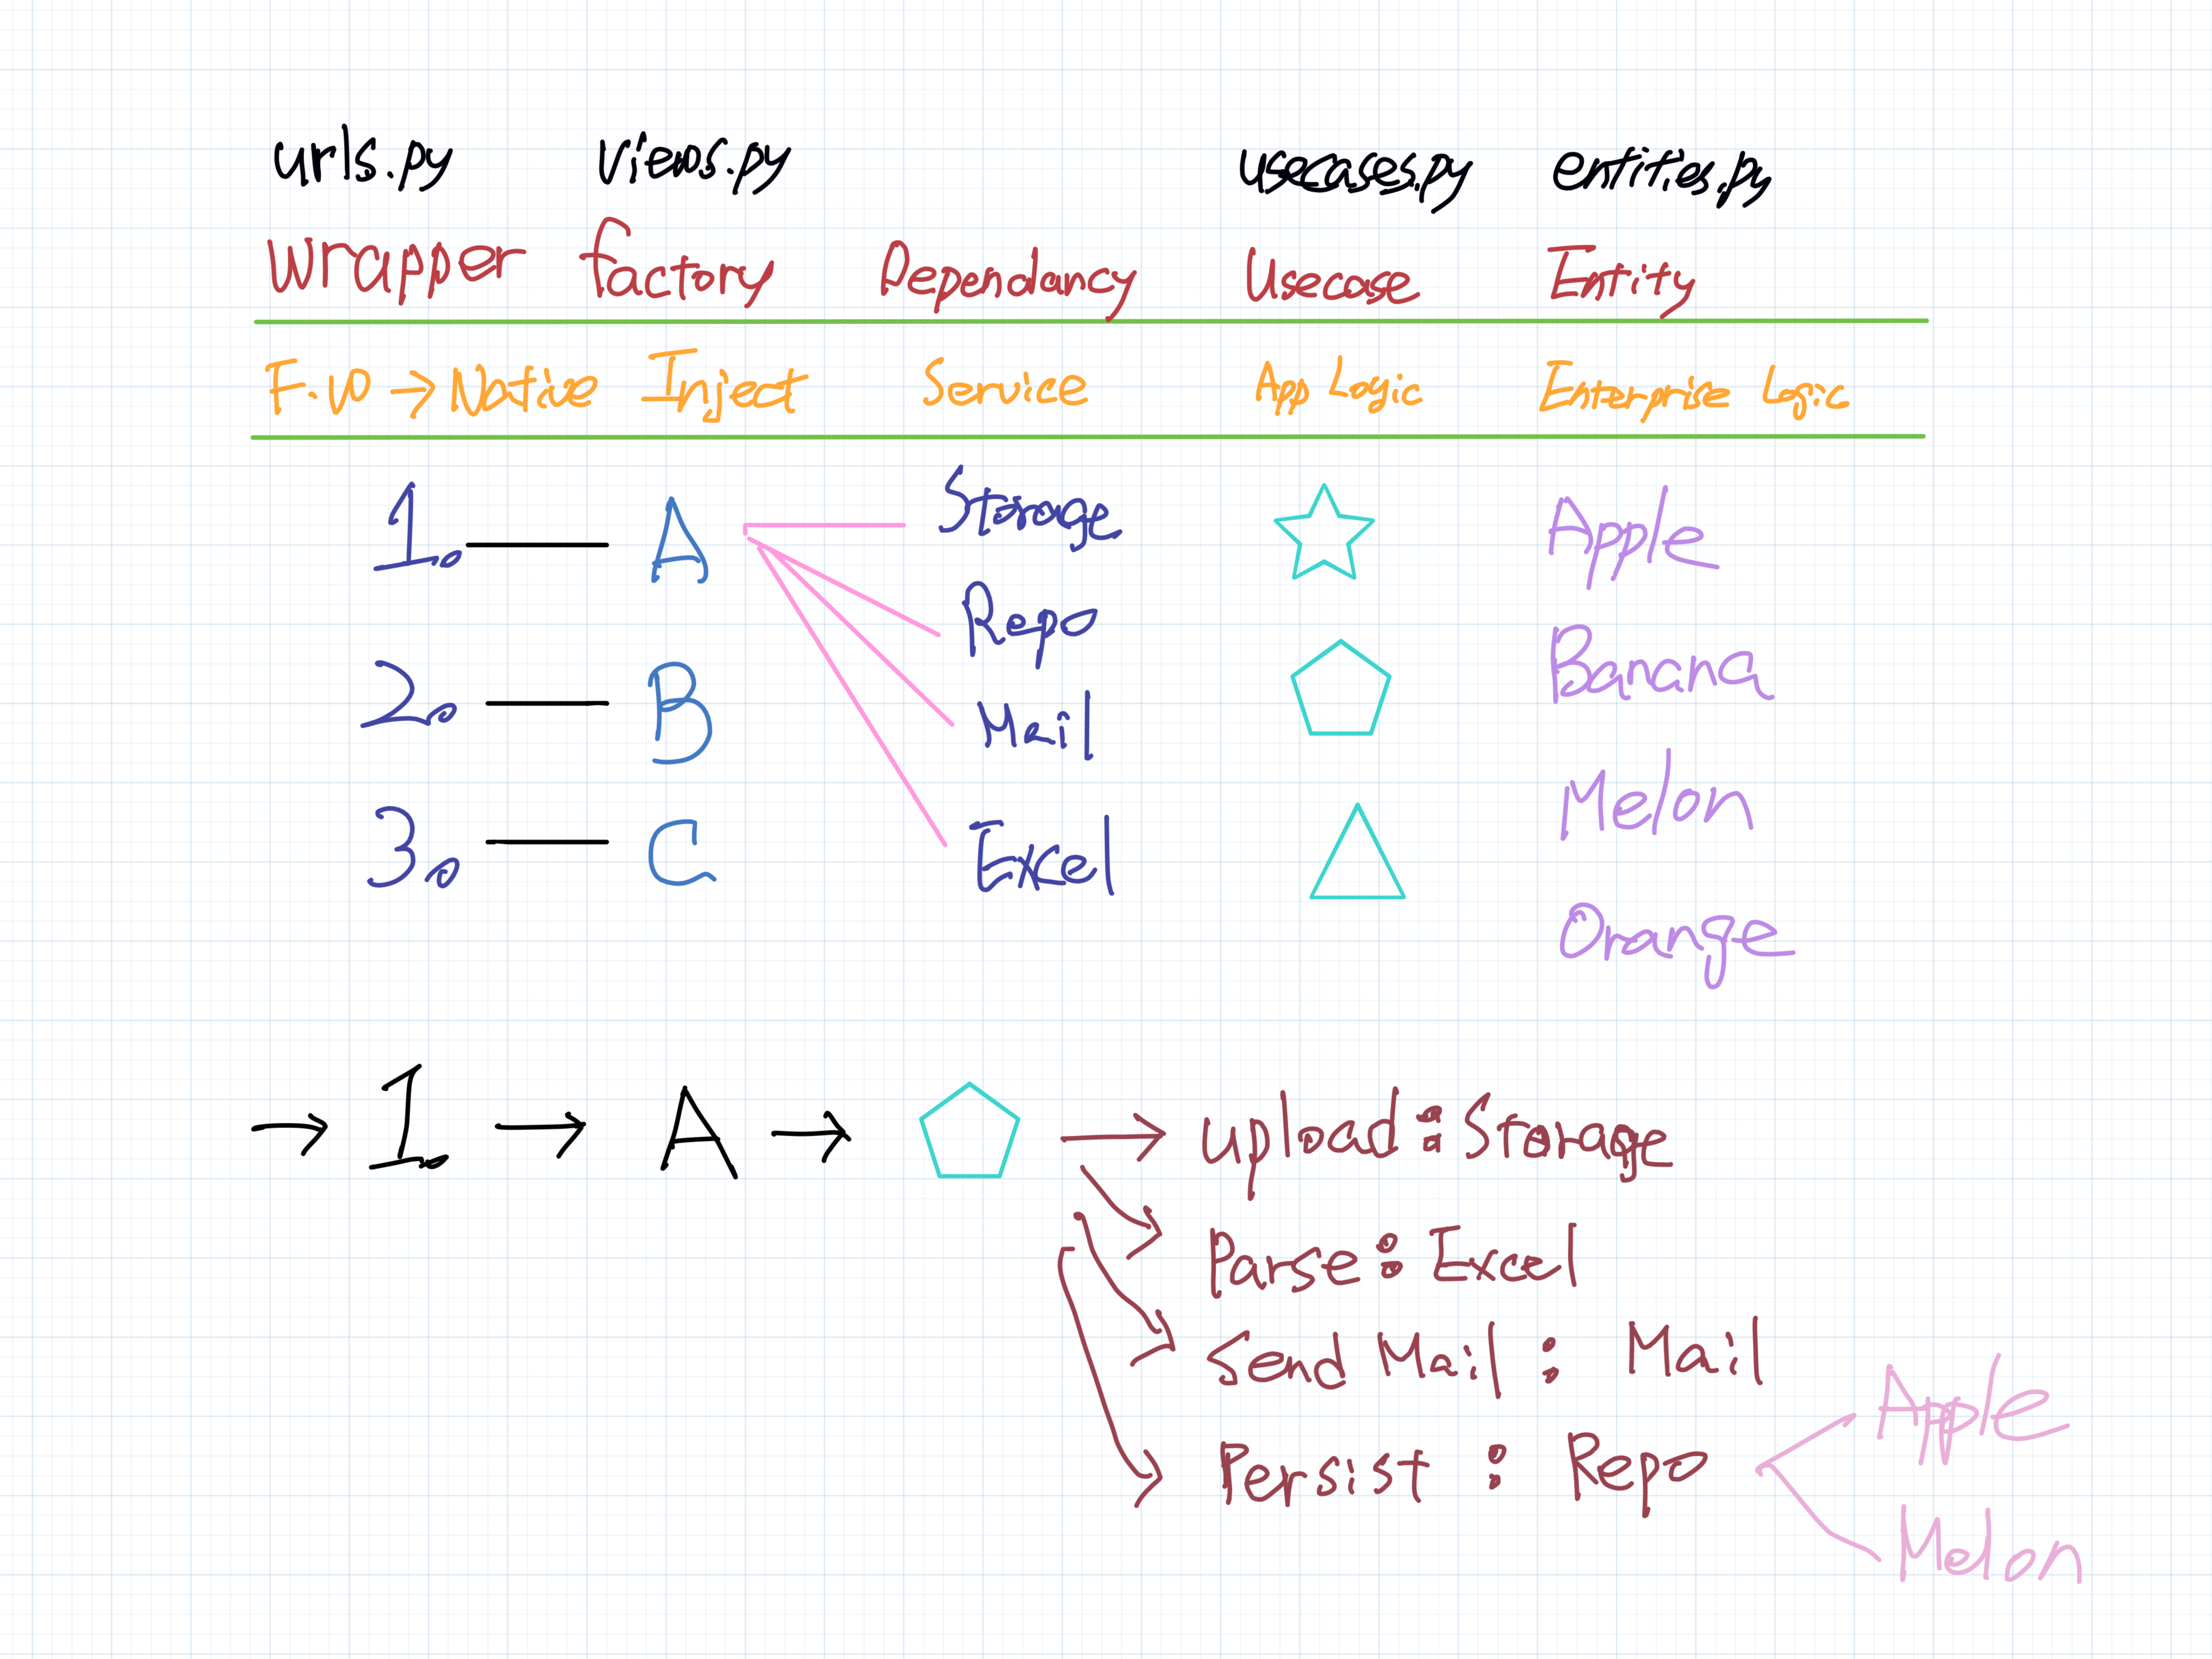 urls.py views.py usecases.py entities.py
Wrapper factory Dependancy Usecase Entity
F.W → Native Inject Service App Logic Enterprise Logic
1. A Storage Apple
Repo
2. B Mail Banana
3. C Excel Melon
Orange
→ 1. → A → → upload : Storage
Parse : Excel
Send Mail : Mail
Persist : Repo
Apple
Melon